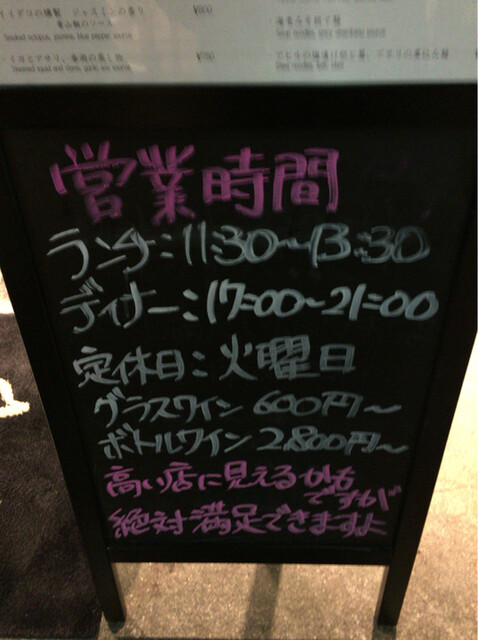 ¥800
¥750
営業時間
ランチ:11:30〜13:30
ディナー:17:00〜21:00
定休日:火曜日
グラスワイン 600円〜
ボトルワイン 2,800円〜
高い店に見えるかも
ですが
絶対満足できますよ